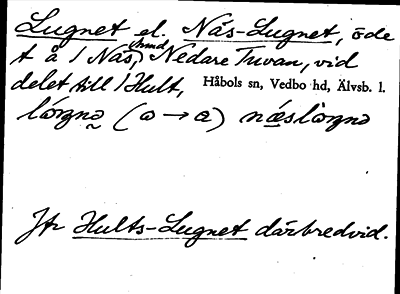 Lugnet el. Näs-Lugnet, öde
t å 1 Näs, hmd. Nedare Tuvan, vid
delet till 1 Hult, Håbols sn, Vedbo hd, Älvsb. l.
(ɷ → a)
Jfr Hults-Lugnet därbredvid.